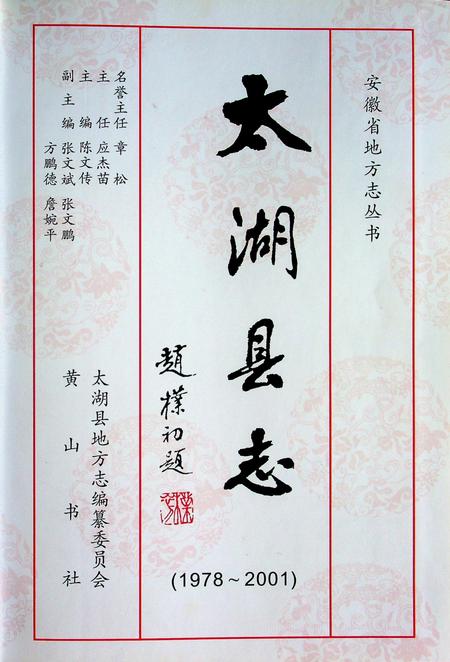 安徽省地方志丛书
太湖县志
趙樸初題
(1978～2001)
名誉主任 章松
主任 应杰苗
主编 陈文传
副主编 张文斌 张文鹏
方鹏德 詹婉平
太湖县地方志编纂委员会
黄山书社